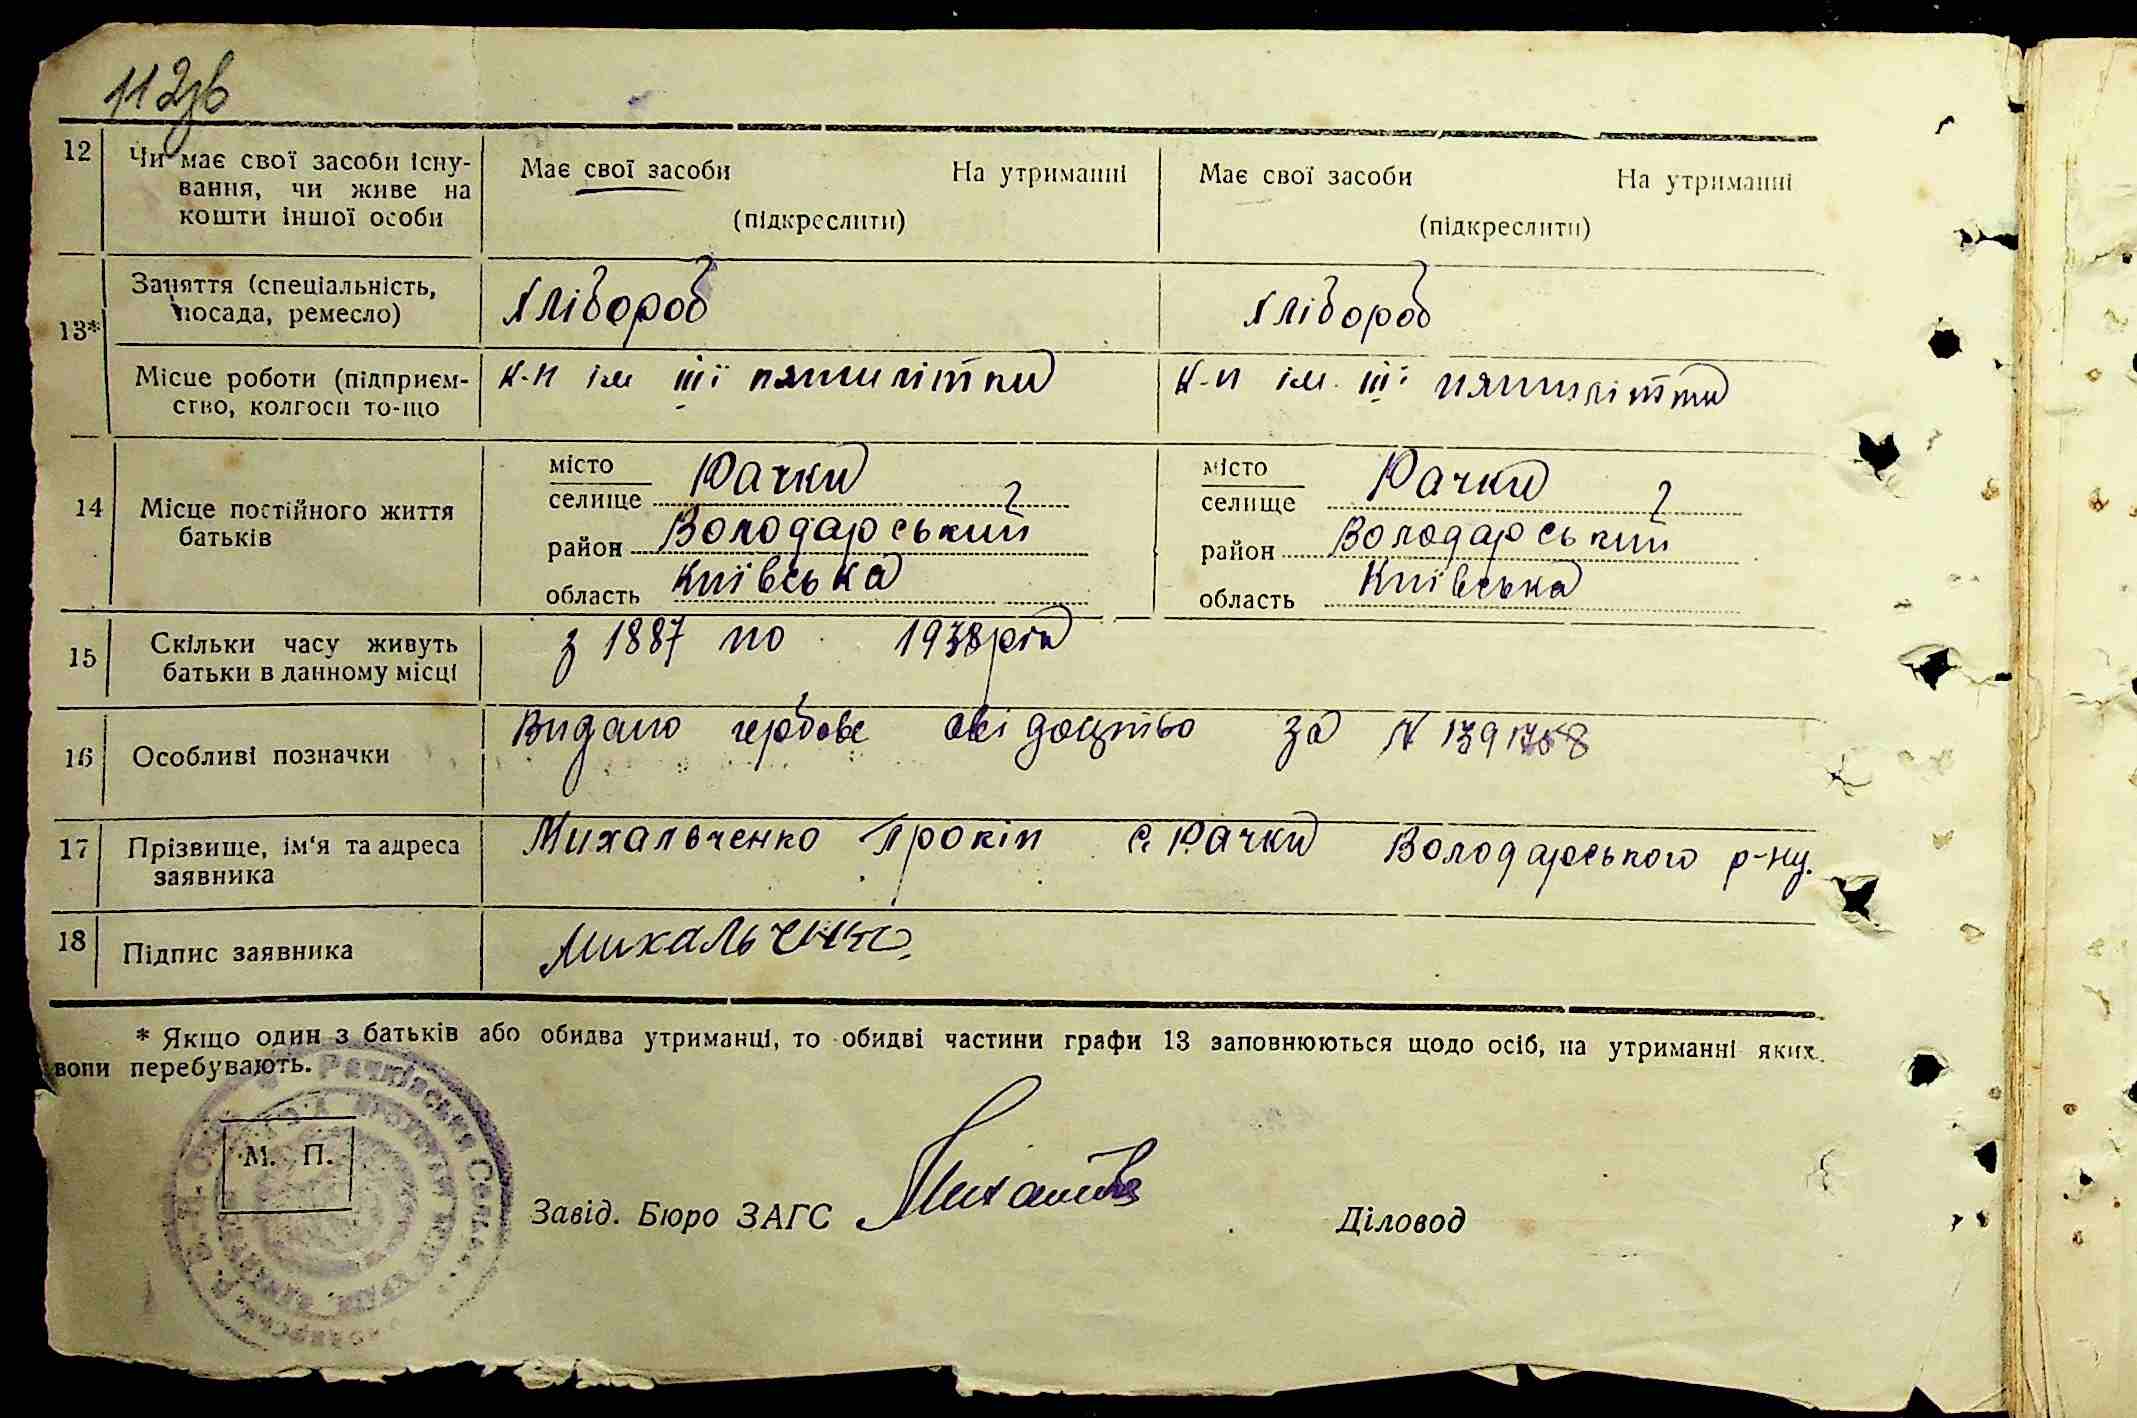 112зв
12 Чи має свої засоби існу- Має свої засоби На утриманні Має свої засоби На утриманні
вання, чи живе на
кошти іншої особи (підкреслити) (підкреслити)
13* Заняття (спеціальність, Хлібороб Хлібороб
посада, ремесло)
Місце роботи (підприєм- к-п ім ІІІї пятилітки к-п ім. ІІІї пятилітки
ство, колгосп то-що
14 Місце постійного життя місто Рачки місто Рачки
батьків селище селище
район Володарський район Володарський
область Київська область Київська
15 Скільки часу живуть з 1887 по 1938 рік
батьки в данному місці
16 Особливі позначки Видано гербове свідоцтво за N
17 Прізвище, ім'я та адреса Михальченко Прокіп с. Рачки Володарського р-ну.
заявника
18 Підпис заявника Михальченко
* Якщо один з батьків або обидва утриманці, то обидві частини графи 13 заповнюються щодо осіб, на утриманні яких
вони перебувають.
Рачківська Сель
М. П.
Завід. Бюро ЗАГС Діловод